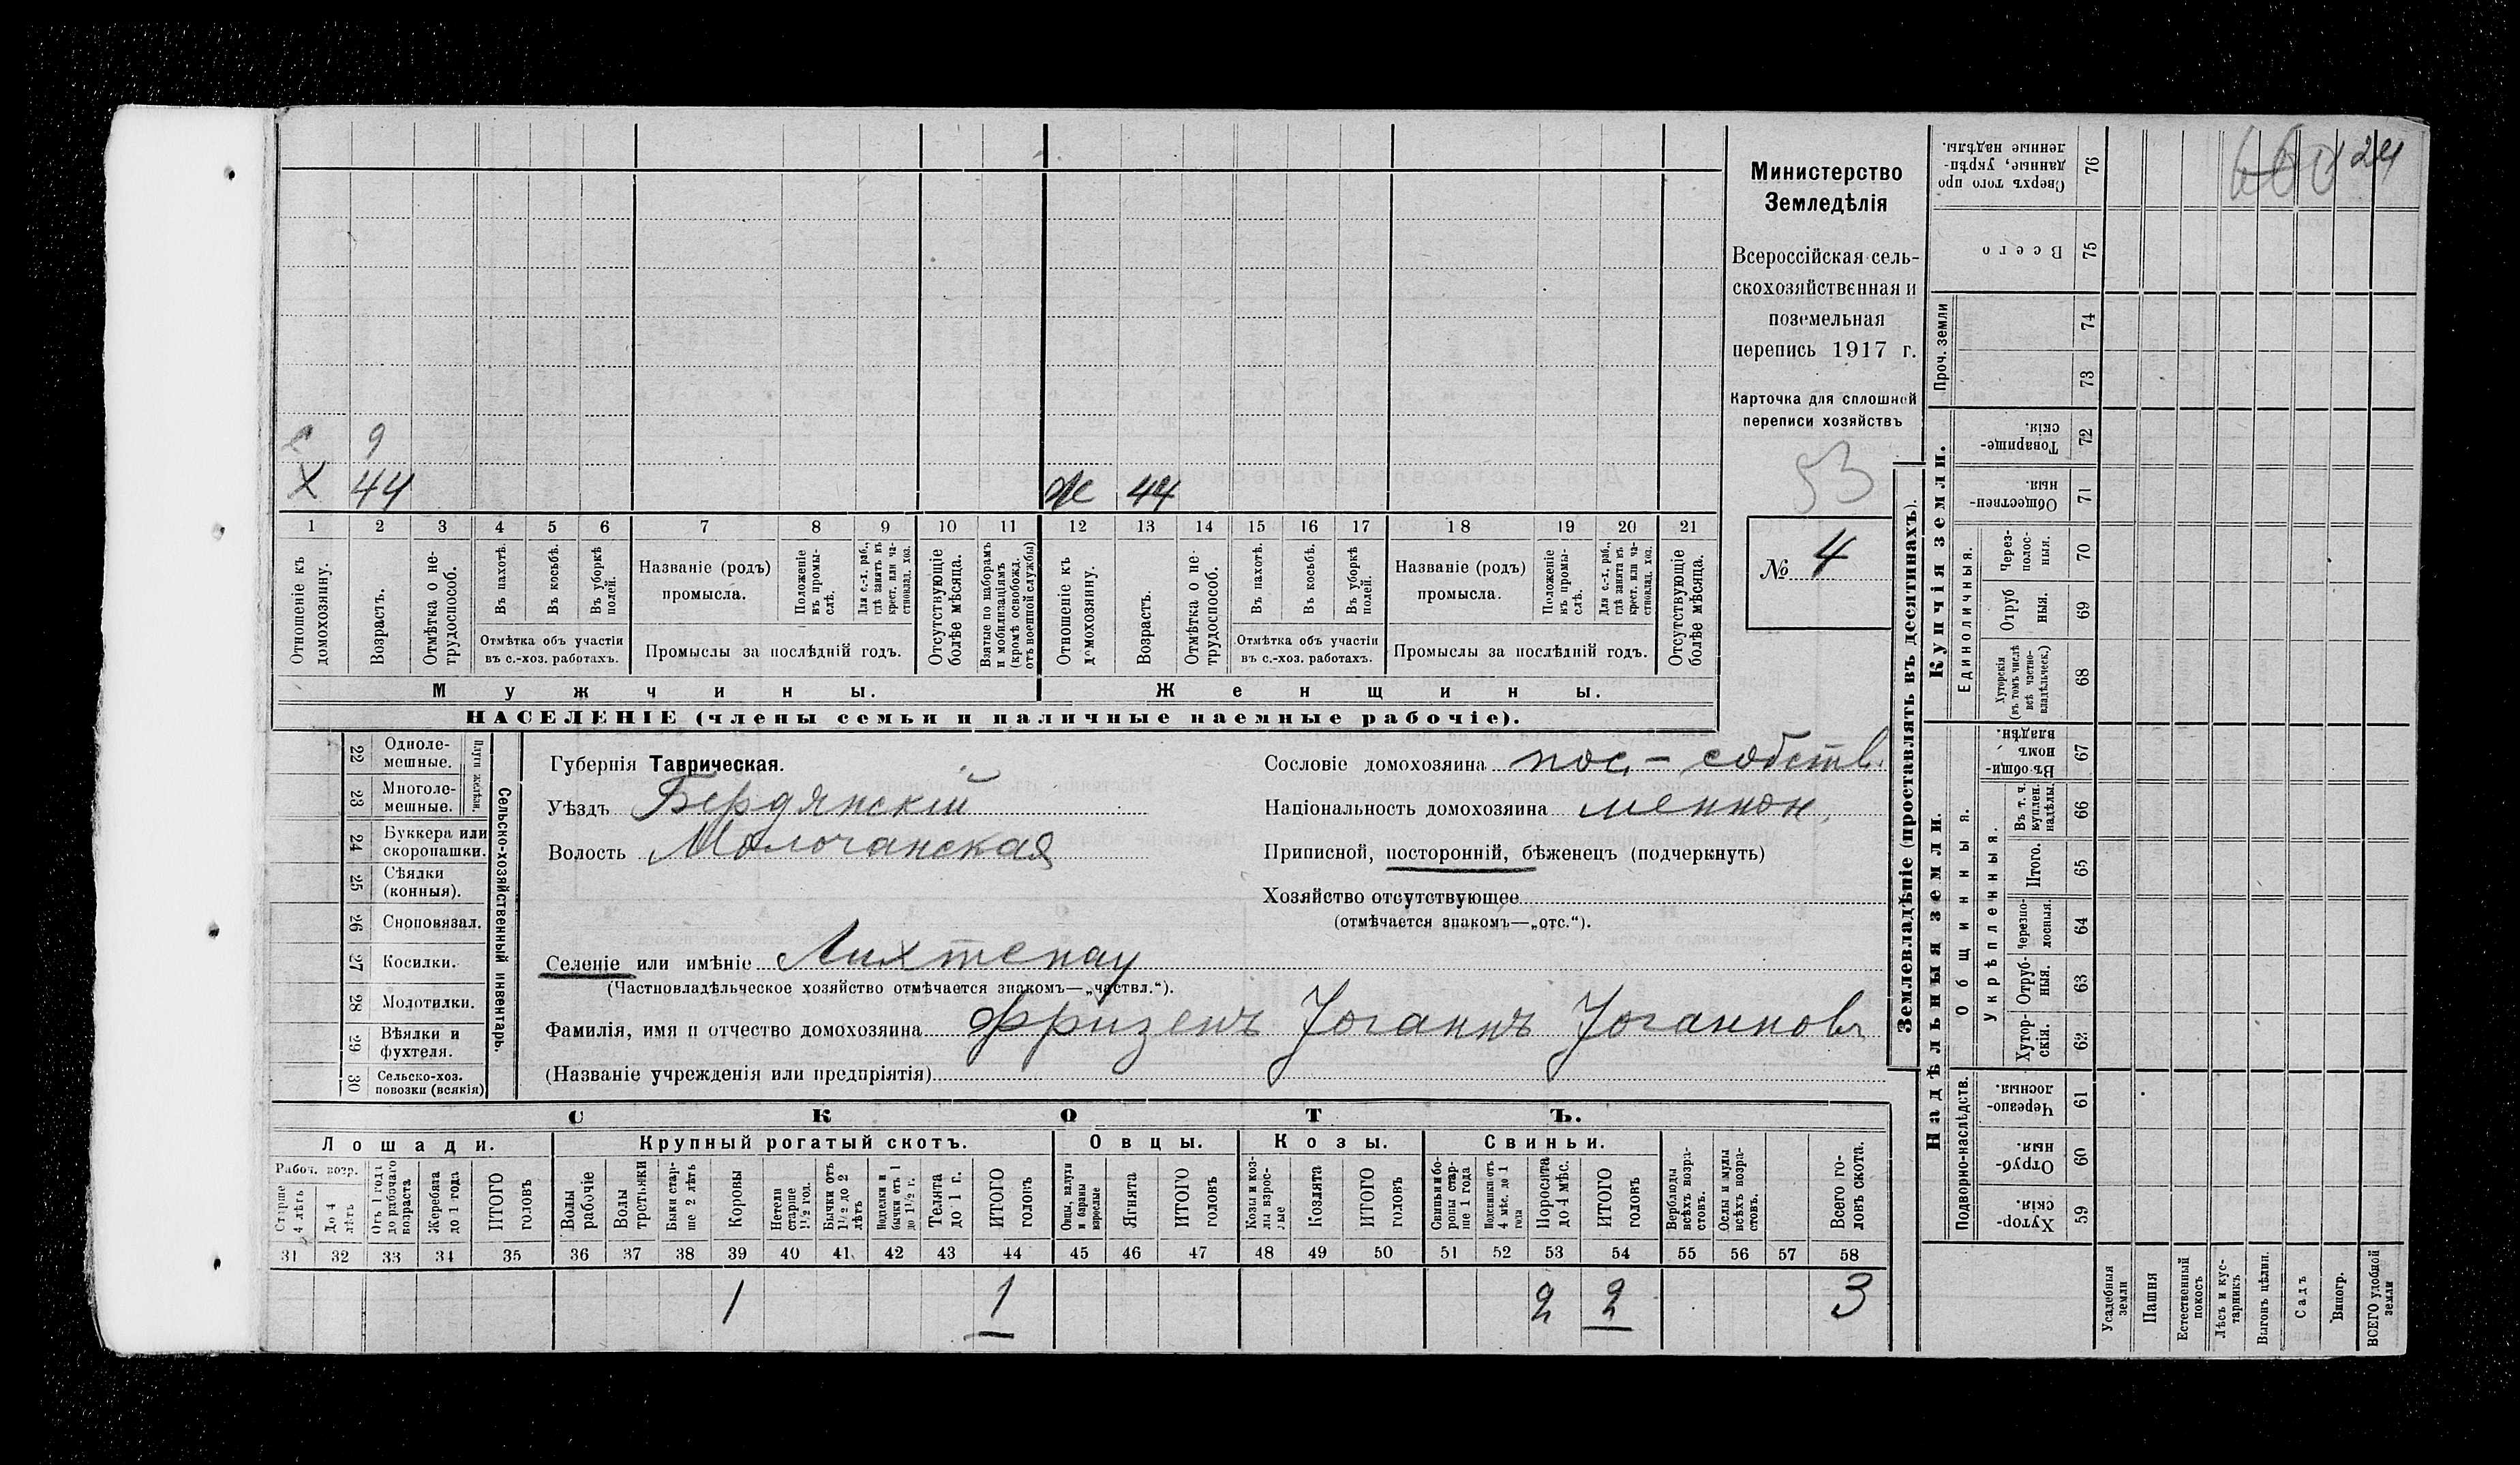 с 9
Х 44 Ж 44
1 2 3 4 5 6 7 8 9 10 11 12 13 14 15 16 17 18 19 20 21
Отношеніе къ домохозяину.
Возрастъ.
Отмѣтка о не-трудоспособ.
Въ пахотѣ.
Въ косьбѣ.
Въ уборкѣ полей.
Отмѣтка объ участіи
въ с.-хоз. работахъ.
Названіе (родъ)
промысла.
Положеніе въ промы-слѣ.
Для с.-х. раб., гдѣ занятъ въ крест. или ча-стновлад. хоз.
Промыслы за послѣдній годъ.
Отсутствующіе болѣе мѣсяца.
Взятые по наборамъ и мобилизаціямъ (кромѣ освобожд. отъ военной службы)
Отношеніе къ домохозяину.
Возрастъ.
Отмѣтка о не-трудоспособ.
Въ пахотѣ.
Въ косьбѣ.
Въ уборкѣ полей.
Отмѣтка объ участіи
въ с.-хоз. работахъ.
Названіе (родъ)
промысла.
Положеніе въ промы-слѣ.
Для с.-х. раб., гдѣ занята въ крест. или ча-стновлад. хоз.
Промыслы за послѣдній годъ.
Отсутствующіе болѣе мѣсяца.
Мужчины. Женщины.
НАСЕЛЕНІЕ (члены семьи и наличные наемные рабочіе).
Министерство
Земледѣлія
Всероссійская сель-
скохозяйственная и
поземельная
перепись 1917 г.
Карточка для сплошной
переписи хозяйствъ
53
№ 4
22 Одноле-мешные.
23 Многоле-мешные.
Плуги желѣзн.
24 Буккера или скоропашки.
25 Сѣялки (конныя).
26 Сноповязал.
27 Косилки.
28 Молотилки.
29 Вѣялки и фухтеля.
30 Сельско-хоз. повозки (всякія)
Сельско-хозяйственный инвентарь.
Губернія Таврическая.
Уѣздъ Бердянскій
Волость Молочанская
Сословіе домохозяина пос.- собств.
Національность домохозяина меннон.
Приписной, посторонній, бѣженецъ (подчеркнуть)
Хозяйство отсутствующее
(отмѣчается знакомъ—„отс.“).
Селеніе или имѣніе Лихтенау
(Частновладѣльческое хозяйство отмѣчается знакомъ—„частвл.“).
Фамилія, имя и отчество домохозяина Фризенъ Іоганнъ Іогановъ
(Названіе учрежденія или предпріятія)
СКОТЪ.
Лошади. Крупный рогатый скотъ. Овцы. Козы. Свиньи.
Рабоч. возр.
Старше 4 лѣтъ
До 4 лѣтъ
Отъ 1 года до рабочаго возраста
Жеребята до 1 года
ИТОГО головъ
Волы рабочіе
Волы третьяки
Быки стар-ше 2 лѣтъ
Коровы
Нетели старше 1½ год.
Бычки отъ 1½ до 2 лѣтъ
Подтелки и бычки отъ 1 до 1½ г.
Телята до 1 г.
ИТОГО головъ
Овцы, валухи и бараны взрослые
Ягнята
ИТОГО головъ
Козы и коз-лы взрос-лые
Козлята
ИТОГО головъ
Свиньи бо-ровы стар-ше 1 года
Подсвинки отъ 4 мѣс. до 1 года
Поросята до 4 мѣс.
ИТОГО головъ
Верблюды всѣхъ возра-стовъ.
Ослы и мулы всѣхъ возра-стовъ.
Всего го-ловъ скота.
31 32 33 34 35 36 37 38 39 40 41 42 43 44 45 46 47 48 49 50 51 52 53 54 55 56 57 58
1 1 2 2 3
Землевладѣніе (проставлять въ десятинахъ).
Купчія земли.
Надѣльныя земли.
Сверхъ того про-данные, укрѣп-ленные надѣлы. 76
Всего 75
Проч. земли 74
73
Товарище-скія. 72
Обществен-ныя. 71
Единоличныя.
Через-полос-ныя. 70
Отруб-ныя. 69
Хуторскія (въ томъ числѣ всѣ частно-владѣльческ.) 68
Общинныя.
Въ общи-номъ владѣн. 67
Укрѣпленныя.
Въ т. ч. куплен. надѣлы. 66
Итого. 65
Черезпо-лосныя. 64
Отруб-ныя. 63
Хутор-скія. 62
Подворно-наслѣдств.
Черезпо-лосныя. 61
Отруб-ныя. 60
Хутор-скія. 59
Усадебныя земли
Пашня
Естественный покосъ
Лѣсъ и кус-тарникъ
Выгонъ цѣлин.
Садъ
Виногр.
ВСЕГО удобной земли
24